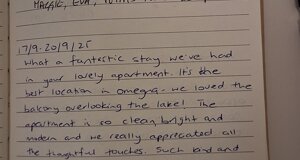 MAGGIE, EVA,
17/9-20/9/25
What a fantastic stay we've had
in your lovely apartment. It's the
best location in omegna - we loved the
balcony overlooking the lake! The
apartment is so clean, bright and
modern and we really appreciated all
the thoughtful touches. Such kind and